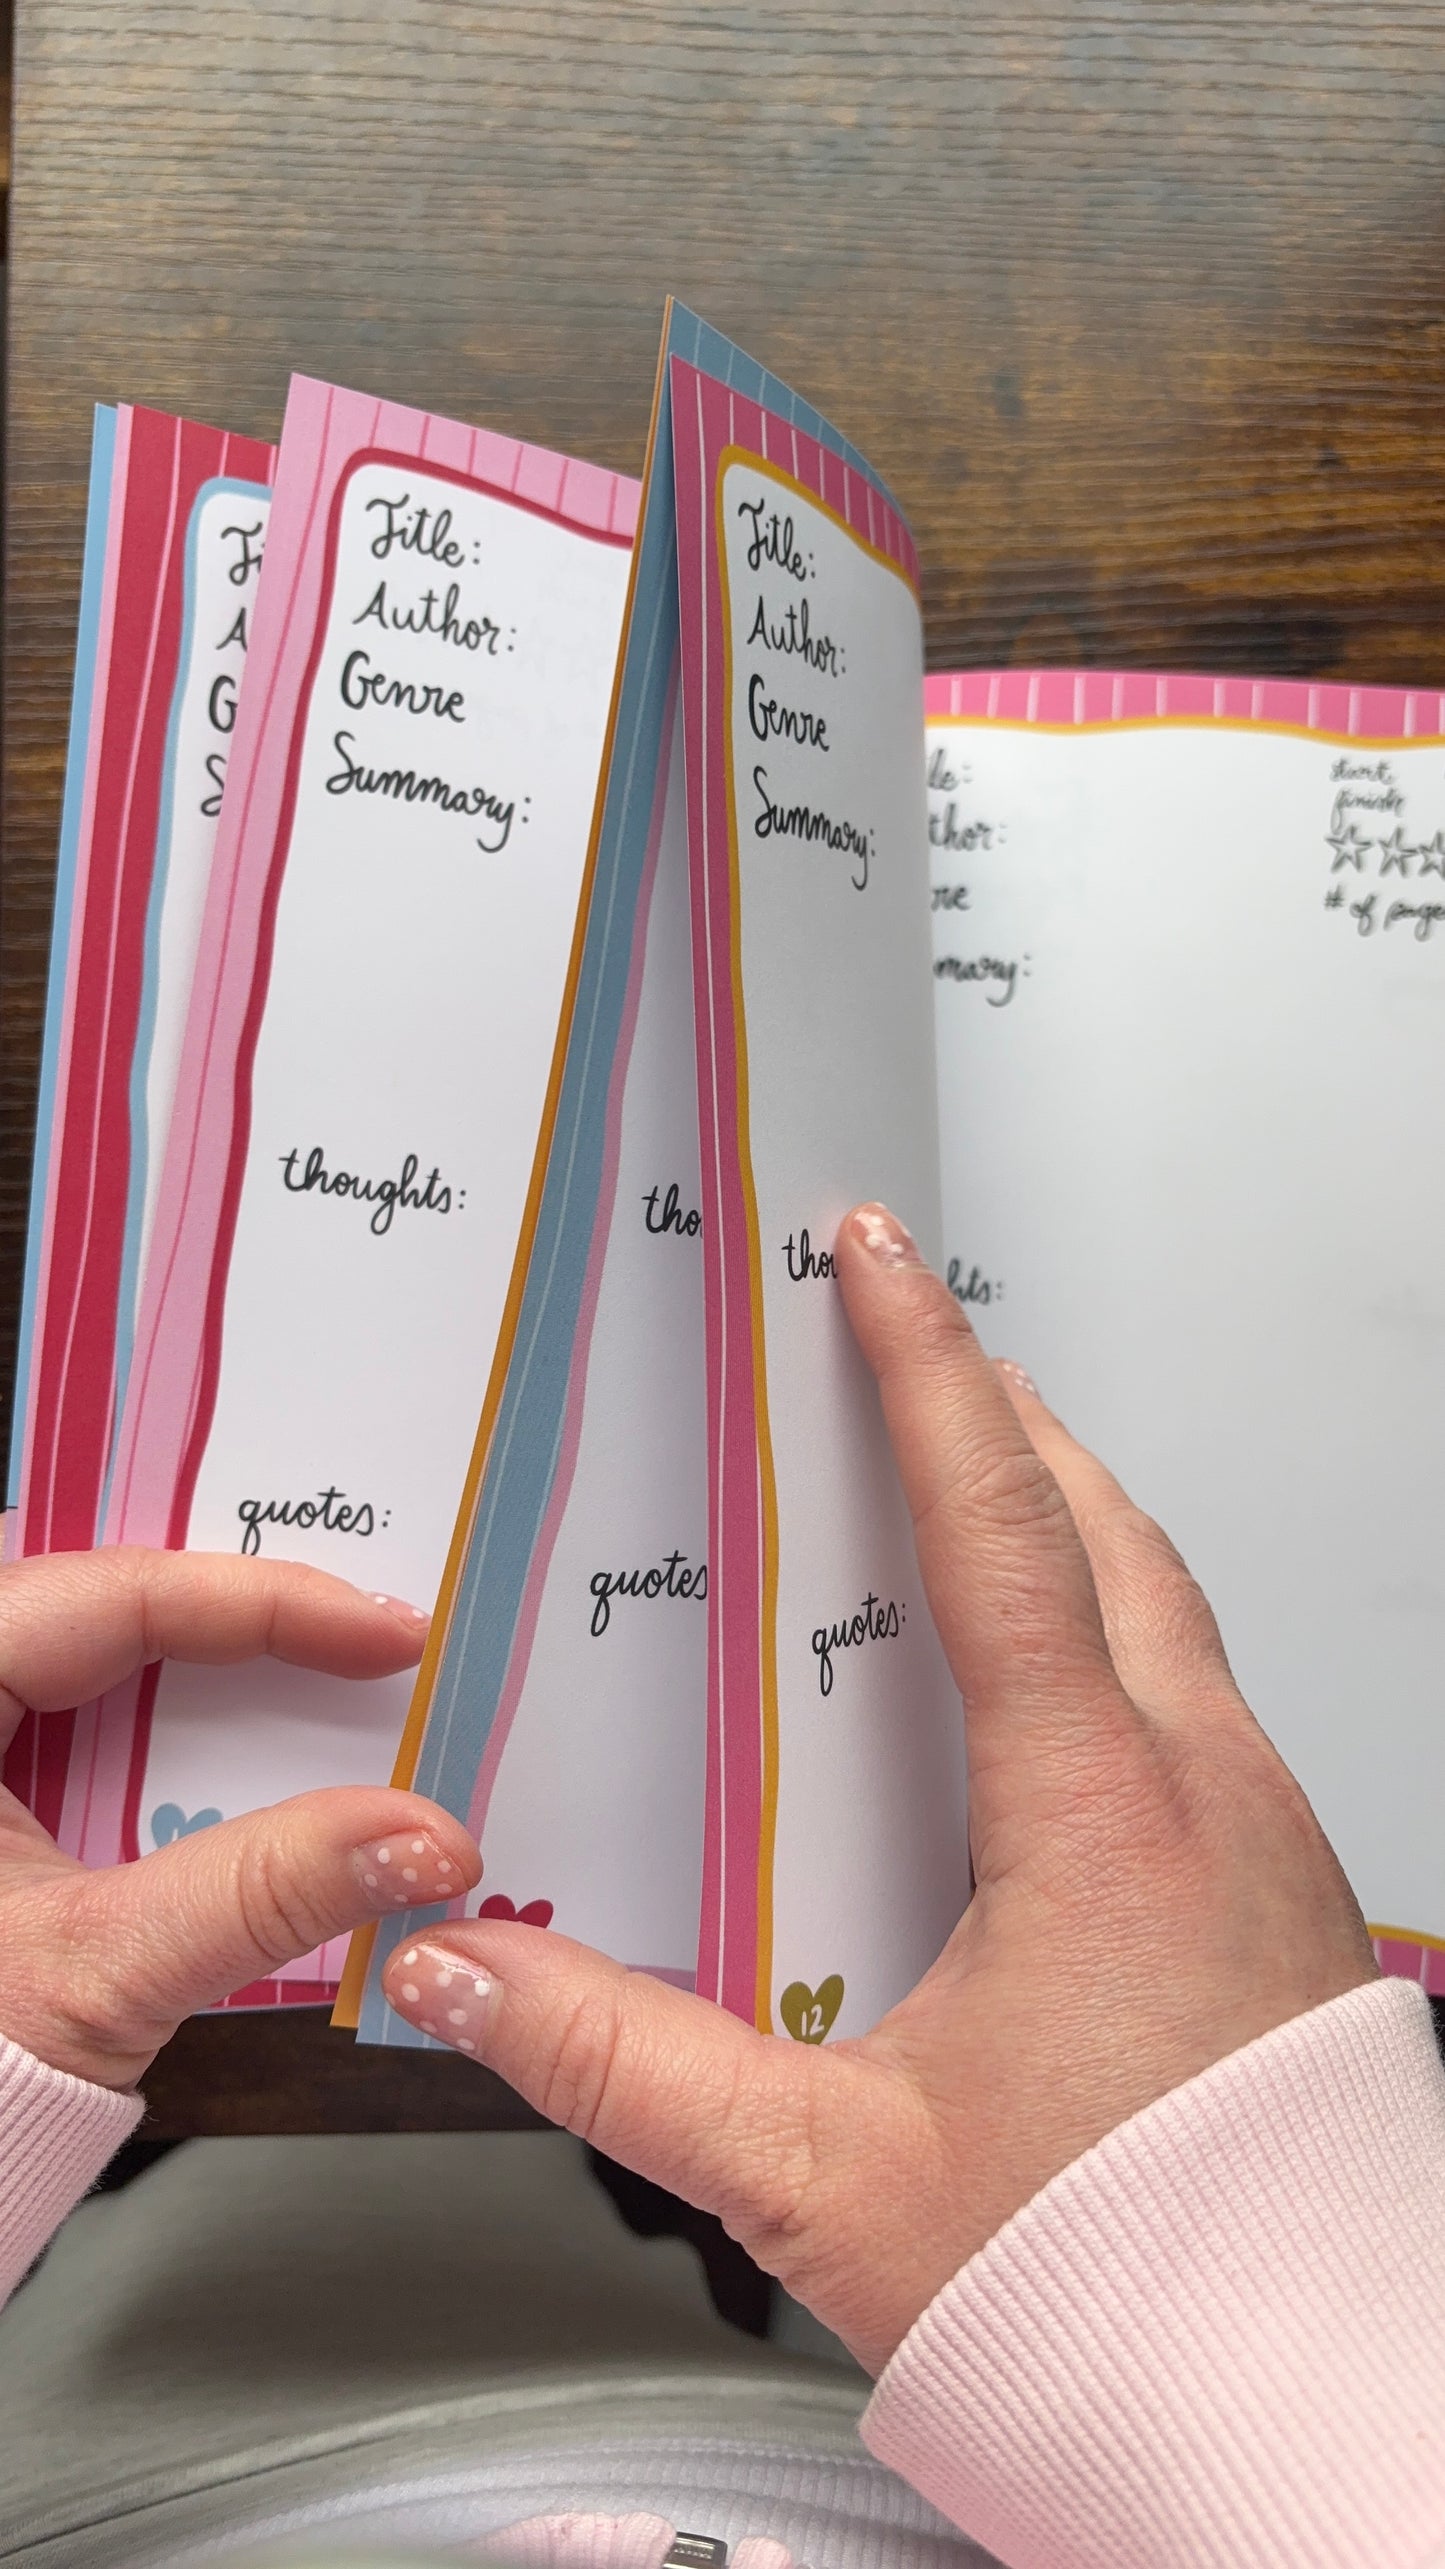 Ti
A
G
S
Title:
Author:
Genre
Summary:
thoughts:
quotes:
tho
quotes
Title:
Author:
Genre
Summary:
thou
quotes:
12
le:
thor:
re
mary:
hts:
start
finish
# of page